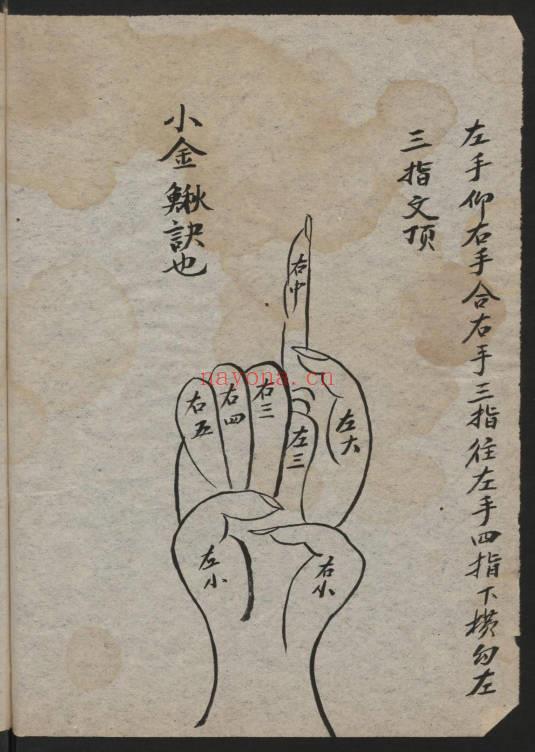 左手仰右手合右手三指往左手四指下横勾左
三指文顶
小金鳅訣也
右中
右三
右四
右五
左三
左大
左小
右小
nayona.cn